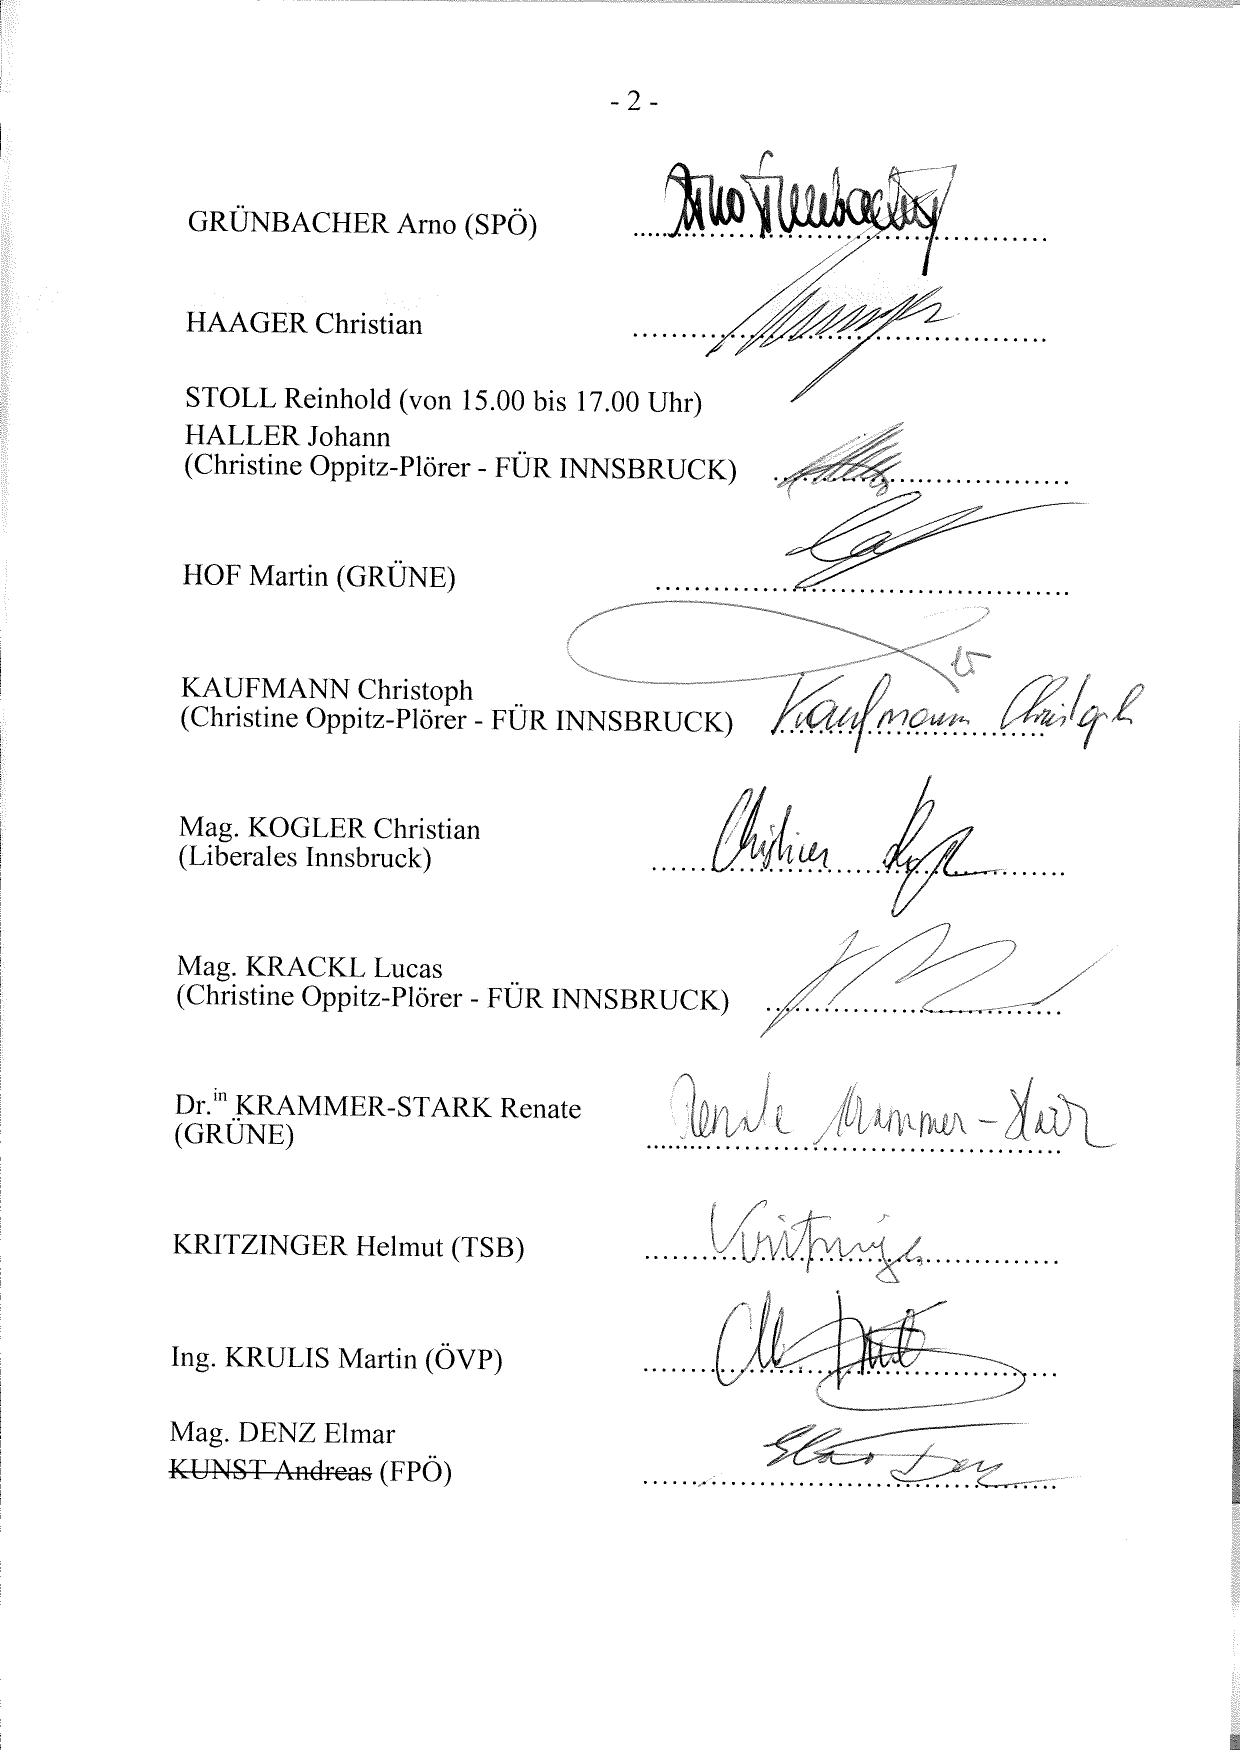 - 2 -
GRÜNBACHER Arno (SPÖ) Arno Grünbacher
HAAGER Christian
STOLL Reinhold (von 15.00 bis 17.00 Uhr)
HALLER Johann
(Christine Oppitz-Plörer - FÜR INNSBRUCK)
HOF Martin (GRÜNE)
KAUFMANN Christoph
(Christine Oppitz-Plörer - FÜR INNSBRUCK) Kaufmann Christoph
Mag. KOGLER Christian
(Liberales Innsbruck) Christian
Mag. KRACKL Lucas
(Christine Oppitz-Plörer - FÜR INNSBRUCK)
Dr.in KRAMMER-STARK Renate Renate Krammer-Stark
(GRÜNE)
KRITZINGER Helmut (TSB) Kritzinger
Ing. KRULIS Martin (ÖVP)
Mag. DENZ Elmar
KUNST Andreas (FPÖ) Elmar Denz